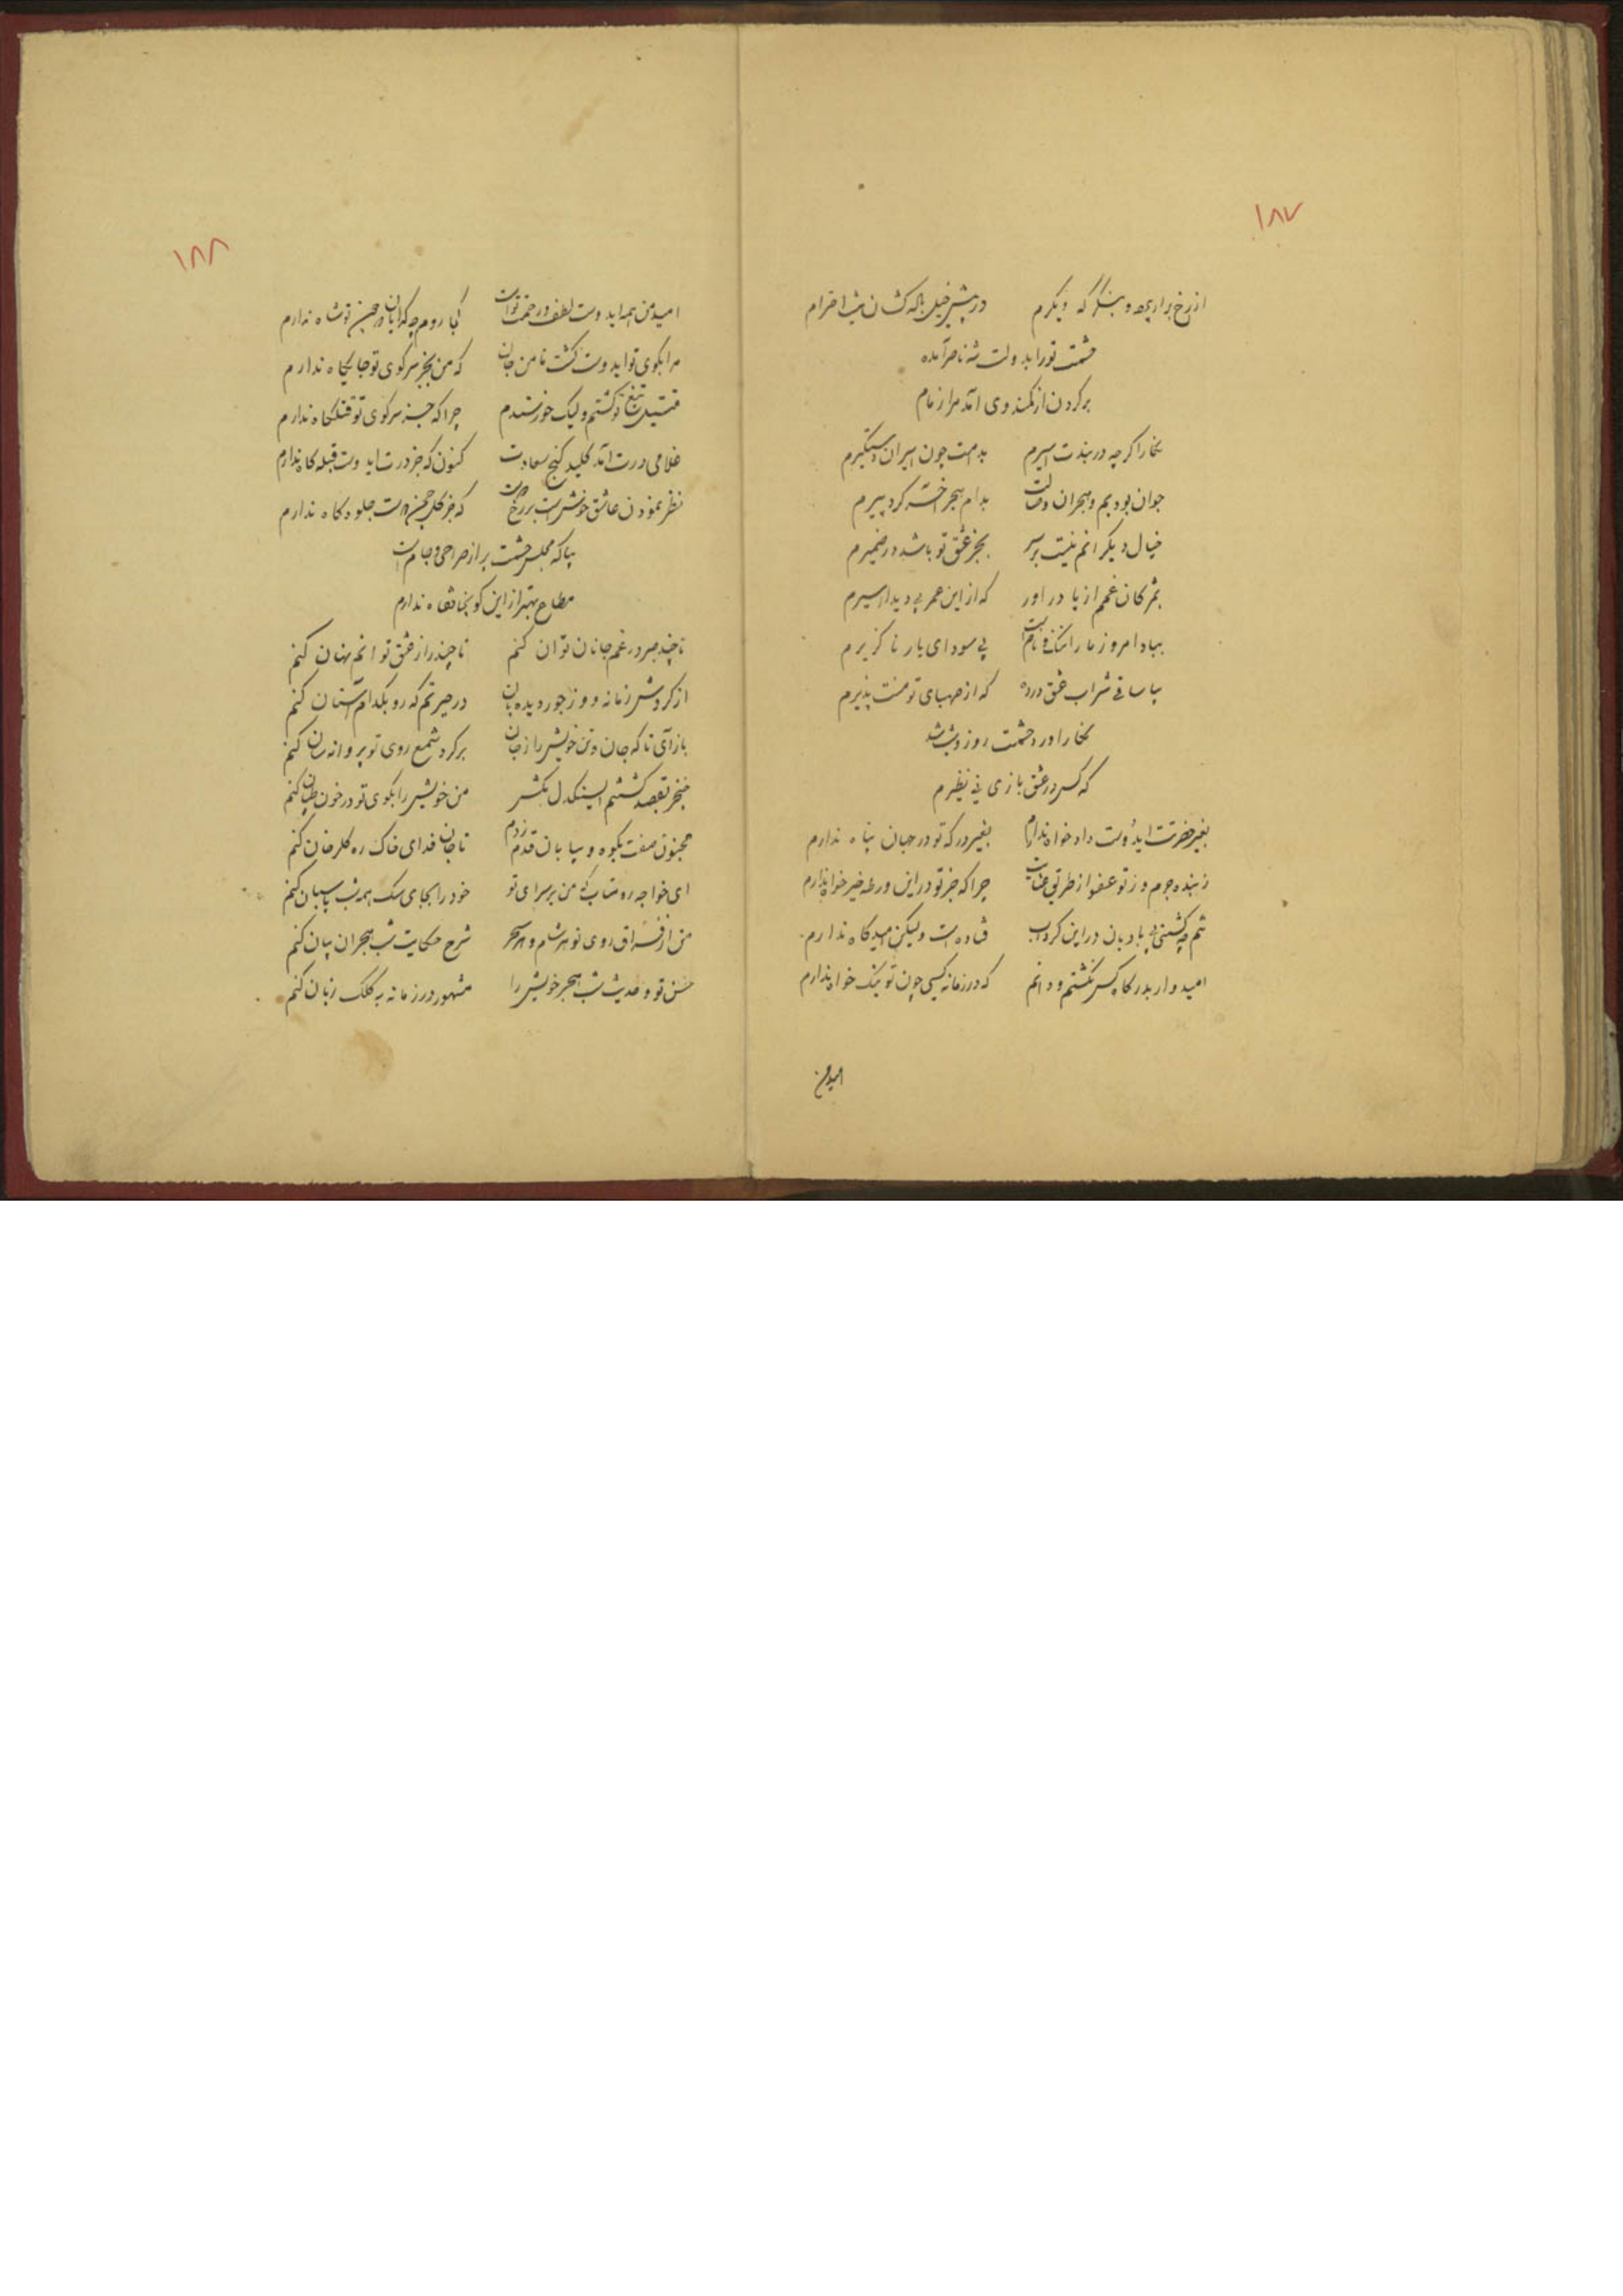 ۱۸۷
از رخ برار پرده و بنگر که دیکرم در پیش خیل ناله کشان
حشمت تو را بدولت شه ناصر آمده
بر کردن از کمند وی آمد مرا زمام
نخارا کرچه در بندت اسیرم بدامت چون اسیران دستکیرم
جوان بودیم و هجران وصالت بدام هجر خسته کرد پیرم
خیال دیکرانم نیست بر سر بجز عشق تو باشد در ضمیرم
بمژکان غمم از پا در اور که از این عمر بی دیدار سیرم
بباد امروز ما را ننک و نام است پی سودای یار ناکزیرم
بیا ساقی شراب عشق درده که از صهبای تو منت پذیرم
نخارا در حشمت روز و شب شد
که کس در عشق بازی بی نظیرم
بغیر حضرتت ایدوست داد خواه ندارم بغیر درکه تو در جهان پناه ندارم
ز بنده جرم و ز تو عفو از طریق عنایت چرا که جز تو در این ورطه خیر خواه ندارم
تنم چه کشتی بی بادبان در این کرداب فتاده است ولیکن امیدکاه ندارم
امیدوار بدرکاه کس نکشتم و دانم که در زمانه کسی چون تو نیک خواه ندارم
امید من
۱۸۸
امید من همه ایدوست لطف و رحمت توست کجا روم چه کدایان جز تو شاه ندارم
مرا بکوی تو ایدوست کشت نا من جان که من بجز سر کوی تو جایکاه ندارم
قتیل تیغ تو کشتم ولیک خورسندم چرا که جز سر کوی تو قتلکاه ندارم
غلامی درت آمد کلید کنج سعادت کنون که جز درت ایدوست قبله کاه ندارم
نظر نمودن عاشق خوشست بر رخ دوست که جز کل چمنت جلوه کاه ندارم
بیا که مجلس حشمت پر از صراحی و جام است
مطاع بهتر از این کو بخانقاه ندارم
تا چند صبر در غم جانان توان کنم تا چند راز عشق تو انم نهان کنم
از کردش زمانه و وز جور دیده بان در حیرتم که رو بکدام آستان کنم
باز آی تا که جان و تن خویش را ز جان بر کرد شمع روی تو پروانه سان کنم
خنجر بقصد کشتنم ای سنکدل بکش من خویش را بکوی تو در خون طپان کنم
مجنون صفت بکوه و بیابان قدم زدم تا جان فدای خاک ره کلرخان کنم
ای خواجه رو متاب که من بر سرای تو خود را بجای سک همه شب پاسبان کنم
من از فراق روی تو هر شام و هر سحر شرح حکایت شب هجران بیان کنم
حسن تو و حدیث شب هجر خویش را مشهور در زمانه به کلک زبان کنم